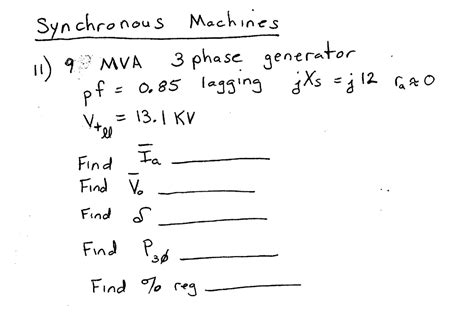 Synchronous Machines
11) 9 MVA 3 phase generator
pf = 0.85 lagging jXs = j12 ra ≈ 0
Vtll = 13.1 KV
Find Īa
Find V̄o
Find δ
Find P3ø
Find % reg